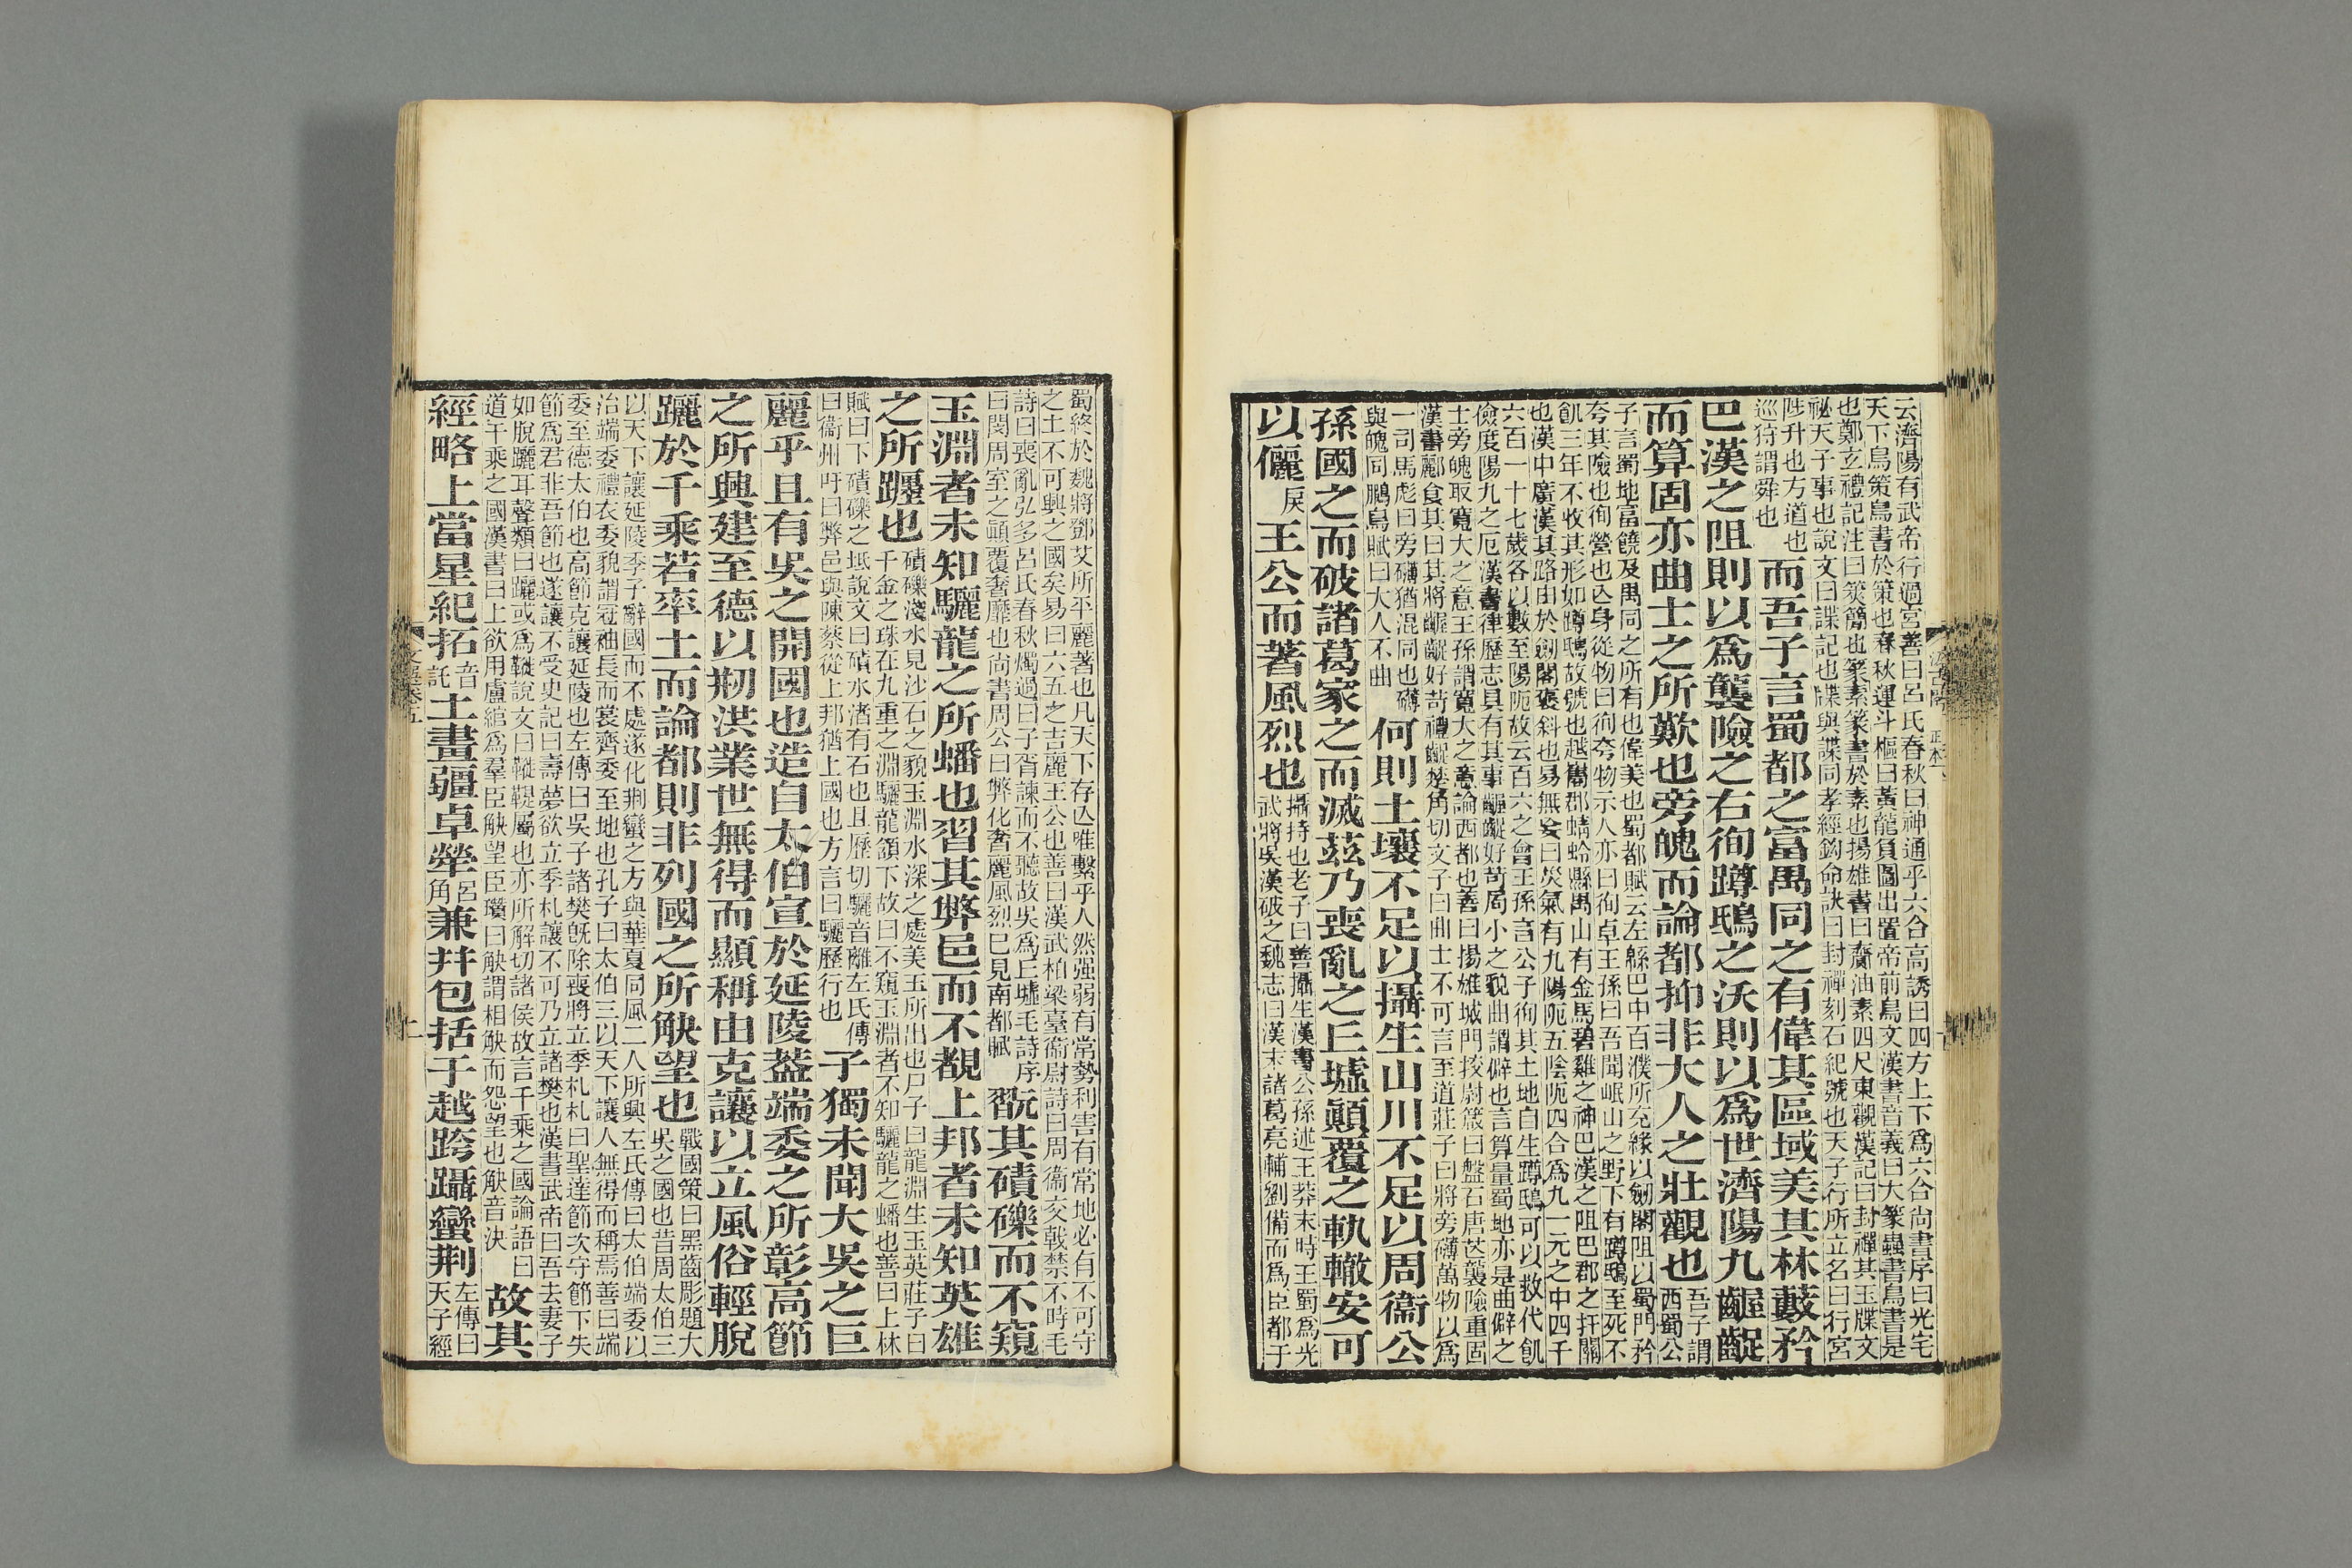 云濟陽有武帝行過宮善曰呂氏春秋曰神通乎六合高誘曰四方上下爲六合尚書序曰光宅
天下鳥策鳥書於策也春秋運斗樞曰黃龍負圖出置帝前鳥文漢書音義曰大篆蟲書鳥書是
也鄭玄禮記注曰策簡也篆素篆書於素也揚雄書曰齎油素四尺東觀漢記曰封禪其玉牒文
祕天子事也說文曰諜記也牒與諜同孝經鈎命訣曰封禪刻石紀號也天子行所立名曰行宮
陟升也方道也
巡狩謂舜也
而吾子言蜀都之富禺同之有偉其區域美其林藪矜
巴漢之阻則以爲襲險之右徇蹲鴟之沃則以爲世濟陽九齷齪
而算固亦曲士之所歎也旁魄而論都抑非大人之壯觀也
吾子謂
西蜀公
子言蜀地富饒及禺同之所有也偉美也蜀都賦云左緜巴中百濮所充緣以劒閣阻以蜀門矜
夸其險也徇營也亾身從物曰徇夸物示人亦曰徇卓王孫曰吾聞岷山之野下有蹲鴟至死不
飢三年不收其形如蹲鴟故號也越嶲郡蜻蛉縣禺山有金馬碧雞之神巴漢之阻巴郡之扞關
也漢中廣漢其路由於劒閣襃斜也易無妄曰災氣有九陽阨五陰阨四合爲九一元之中四千
六百一十七歲各以數至陽阨故云百六之會王孫言公子徇其土地自生蹲鴟可以救代飢
儉度陽九之厄漢書律歷志具有其事齷齪好苛局小之貌曲謂僻也言算量蜀地亦是曲僻之
士旁魄取寬大之意王孫謂寬大之意論西都也善曰揚雄城門挍尉箴曰盤石唐芒襲險重固
漢書酈食其曰其將齷齪好苛禮齪楚角切文子曰曲士不可言至道莊子曰將旁礴萬物以爲
一司馬彪曰旁礴猶混同也礴
與魄同鵬鳥賦曰大人不曲
何則土壤不足以攝生山川不足以周衞公
孫國之而破諸葛家之而滅茲乃喪亂之丘墟顚覆之軌轍安可
以儷
戾
王公而著風烈也
攝持也老子曰善攝生漢書公孫述王莽末時王蜀爲光
武將吳漢破之魏志曰漢末諸葛亮輔劉備而爲臣都于
蜀終於魏將鄧艾所平麗著也凡天下存亾唯繫乎人然强弱有常勢利害有常地必有不可守
之土不可興之國矣易曰六五之吉麗王公也善曰漢武柏梁臺衞尉詩曰周衞交戟禁不時毛
詩曰喪亂弘多呂氏春秋燭過曰子胥諫而不聽故吳爲丘墟毛詩序
曰閔周室之顚覆奢靡也尚書周公曰弊化奢麗風烈已見南都賦
翫其磧礫而不窺
玉淵者未知驪龍之所蟠也習其弊邑而不覩上邦者未知英雄
之所躔也
磧礫淺水見沙石之貌玉淵水深之處美玉所出也尸子曰龍淵生玉英莊子曰
千金之珠在九重之淵驪龍頷下故曰不窺玉淵者不知驪龍之蟠也善曰上林
賦曰下磧礫之坻說文曰磧水渚有石也且歷切驪音離左氏傳
曰衞州吁曰弊邑與陳蔡從上邦猶上國也方言曰躔歷行也
子獨未聞大吳之巨
麗乎且有吳之開國也造自太伯宣於延陵葢端委之所彰高節
之所興建至德以剏洪業世無得而顯稱由克讓以立風俗輕脫
躧於千乘若率土而論都則非列國之所觖望也
戰國策曰黑齒彫題大
吳之國也昔周太伯三
以天下讓延陵季子辭國而不處遂化荆蠻之方與華夏同風二人所興左氏傳曰太伯端委以
治端委禮衣委貌謂冠袖長而裳齊委至地也孔子曰太伯三以天下讓人無得而稱焉善曰端
委至德太伯也高節克讓延陵也左傳曰吳子諸樊旣除喪將立季札札曰聖達節次守節下失
節爲君非吾節也遂讓不受史記曰壽夢欲立季札讓不可乃立諸樊也漢書武帝曰吾去妻子
如脫躧耳聲類曰躧或爲鞵說文曰鞵鞮屬也亦所解切諸侯故言千乘之國論語曰
道千乘之國漢書曰上欲用盧綰爲羣臣觖望臣瓚曰觖謂相觖而怨望也觖音決
故其
經略上當星紀拓
音
託
土畫疆卓犖
呂
角
兼幷包括于越跨躡蠻荆
左傳曰
天子經
文選卷五
二
汲古閣